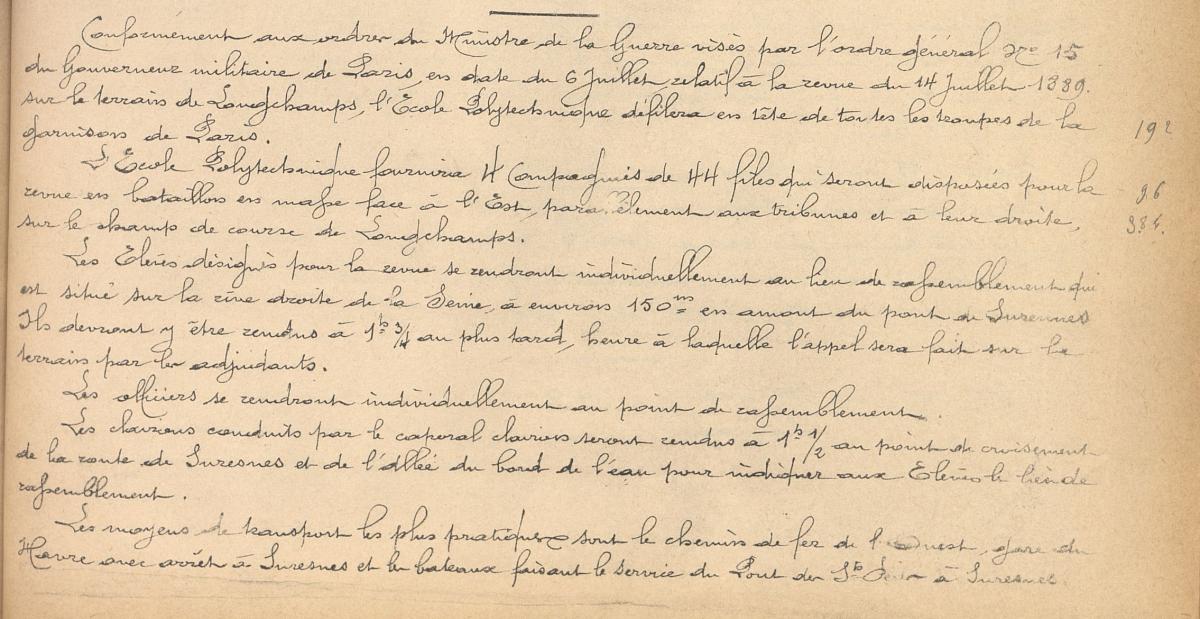 Conformément aux ordres du Ministre de la Guerre visés par l'ordre général No 15
du Gouverneur militaire de Paris, en date du 6 Juillet, relatif à la revue du 14 Juillet 1889.
sur le terrain de Longchamps, l'École Polytechnique défilera en tête de toutes les troupes de la
garnison de Paris.
192
L'École Polytechnique fournira 4 Compagnies de 44 files qui seront disposées pour la
96
revue en bataillon en masse face à l'Est, parallèlement aux tribunes et à leur droite,
384.
sur le champ de course de Longchamps.
Les Elèves désignés pour la revue se rendront individuellement au lieu de rassemblement qui
est situé sur la rive droite de la Seine, à environ 150m en amont du pont de Suresnes
Ils devront y être rendus à 1h 3/4 au plus tard, heure à laquelle l'appel sera fait sur le
terrain par les adjudants.
Les officiers se rendront individuellement au point de rassemblement.
Les clairons conduits par le caporal clairon seront rendus à 1h 1/2 au point de croisement
de la route de Suresnes et de l'allée du bord de l'eau pour indiquer aux Elèves le lieu de
rassemblement.
Les moyens de transport les plus pratiques sont le chemin de fer de l'Ouest, gare du
Havre avec arrêt à Suresnes et les bateaux faisant le service du Pont des Sts Pères à Suresnes.